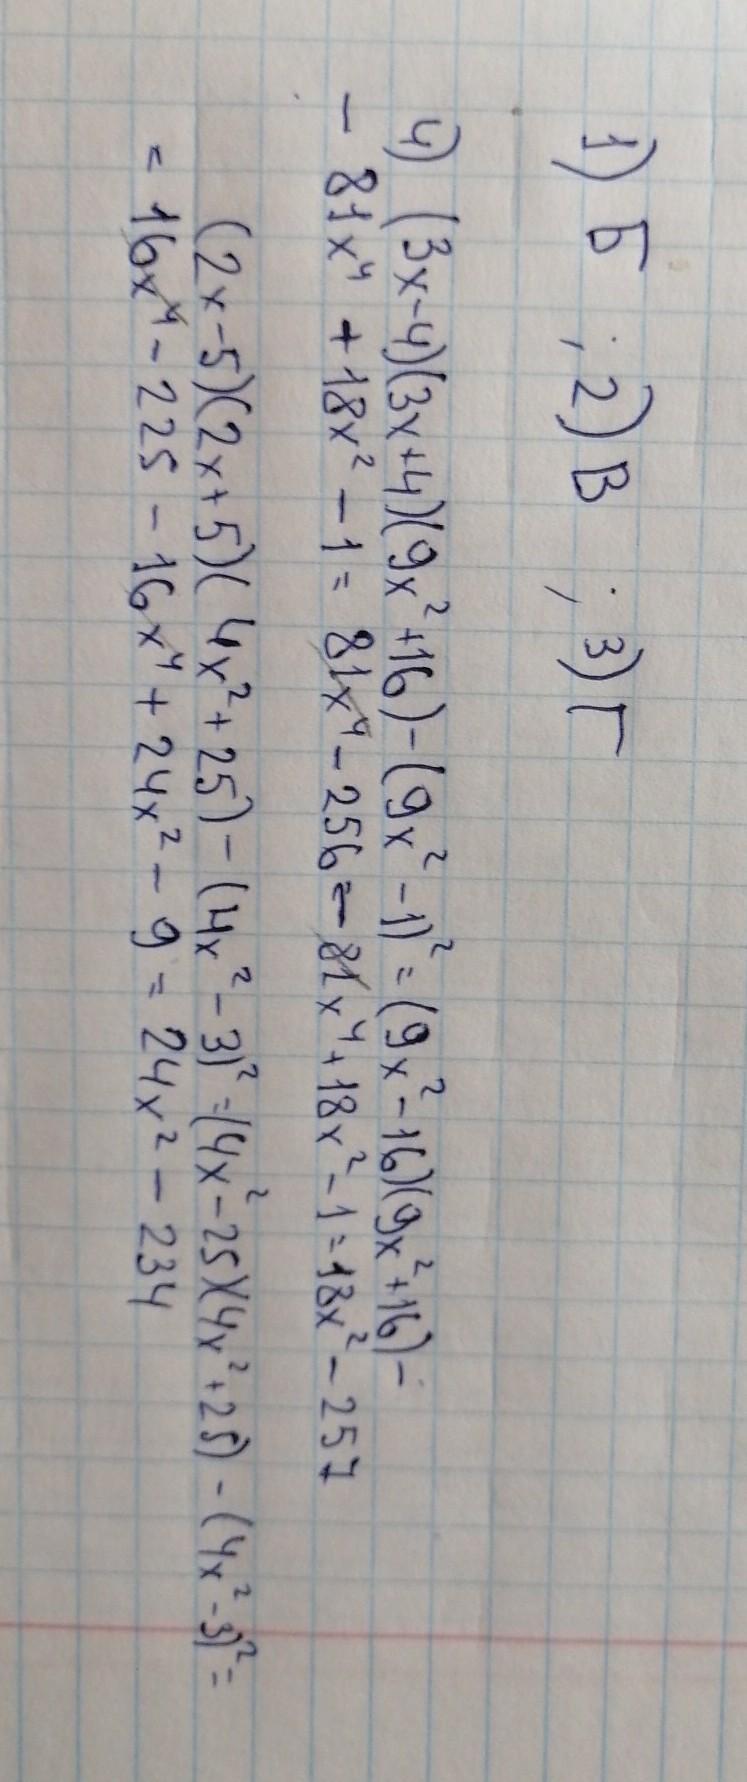 1) Б ; 2) В ; 3) Г
4) (3x-4)(3x+4)(9x²+16)-(9x²-1)² = (9x²-16)(9x²+16)-
- 81x⁴ + 18x² - 1 = 81x⁴ - 256 = - 81x⁴ + 18x² - 1 = 18x² - 257
(2x-5)(2x+5)(4x²+25)-(4x²-3)² = (4x²-25)(4x²+25)-(4x²-3)² =
= 16x⁴ - 225 - 16x⁴ + 24x² - 9 = 24x² - 234